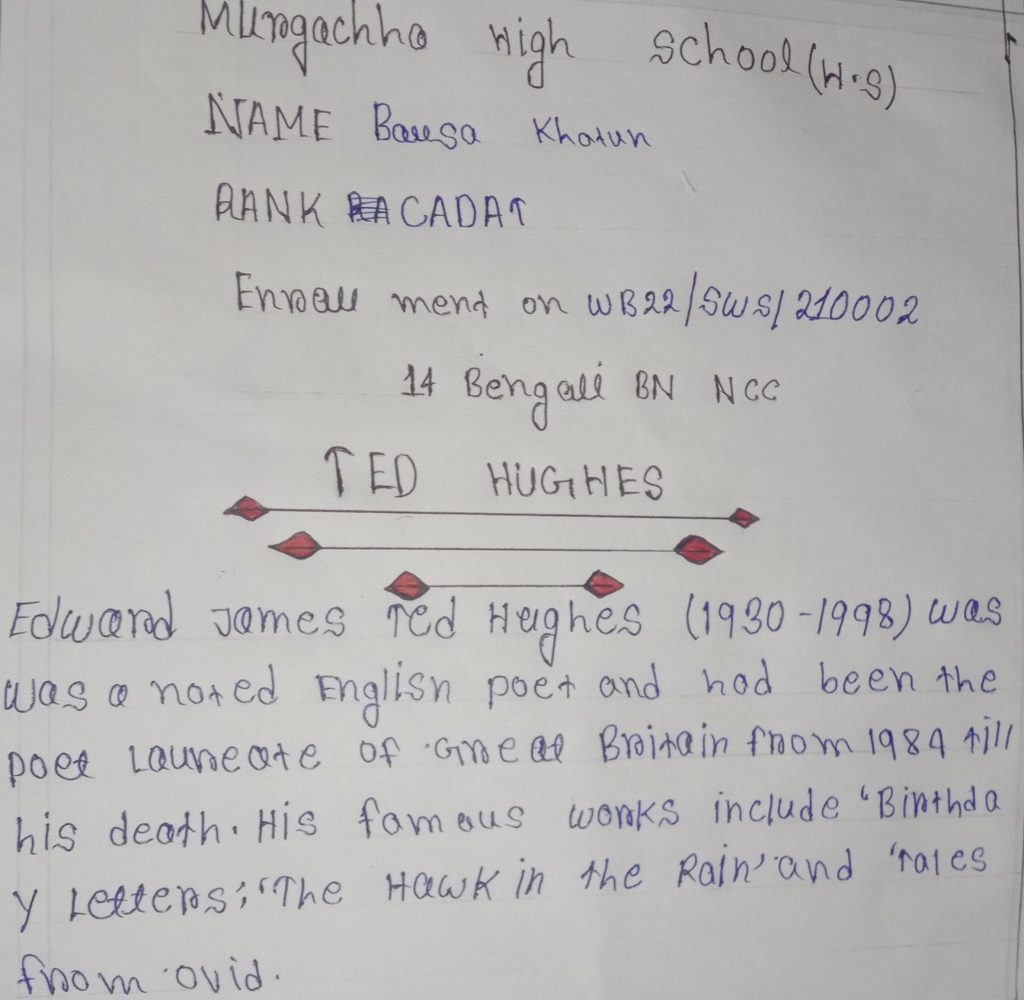 Murgachha High School (H.S)
NAME Barsa Khatun
RANK CADAT
Enroll ment on WB22/SWS/210002
14 Bengali BN NCC
TED HUGHES
Edward James Ted Hughes (1930-1998) was
was a noted English poet and had been the
poet Laureate of Great Britain from 1984 till
his death. His famous works include 'Birthda
y Letters; 'The Hawk in the Rain' and 'Tales
from ovid.